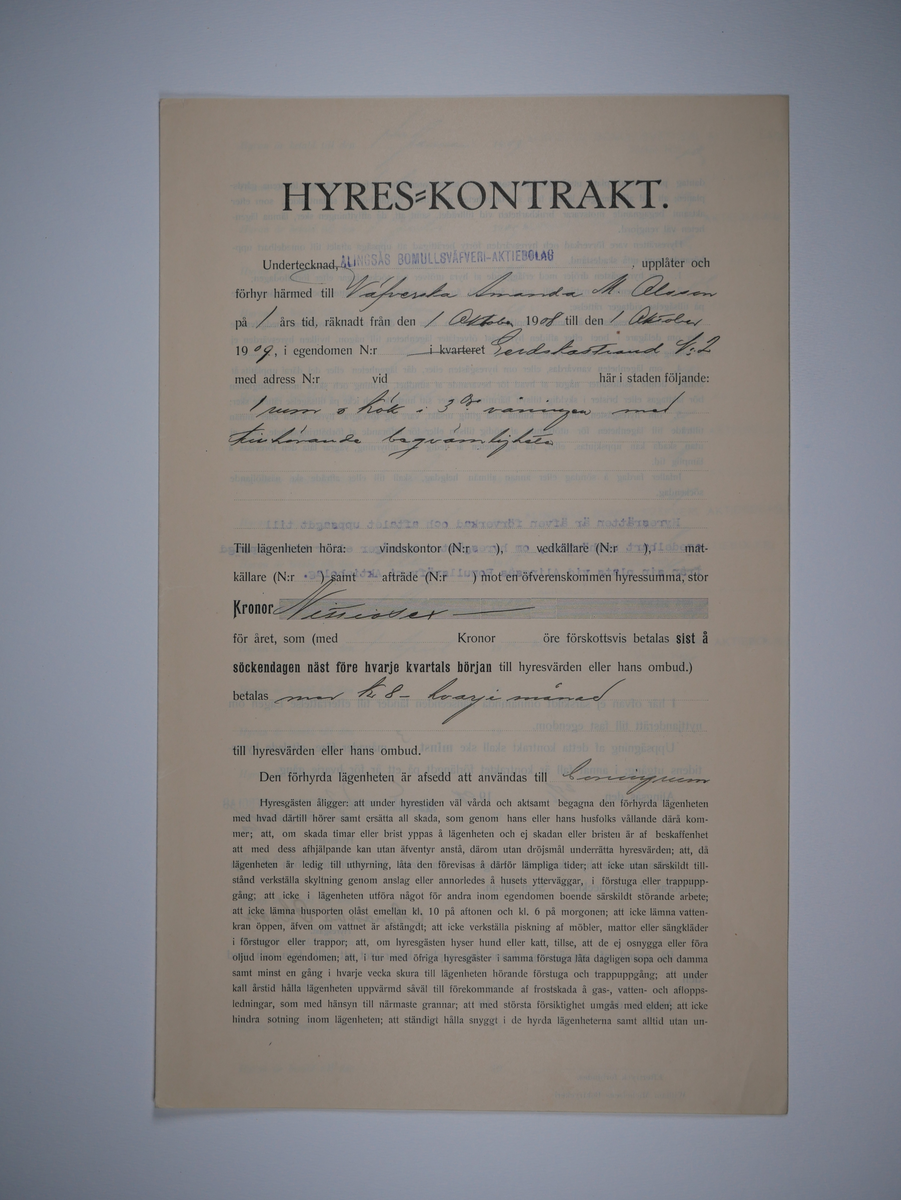 HYRES=KONTRAKT.
Undertecknad, ALINGSÅS BOMULLSVÄFVERI-AKTIEBOLAG, upplåter och
förhyr härmed till Väfverska Amanda M. Olsson
på 1 års tid, räknadt från den 1 Oktober 1908 till den 1 Oktober
1909, i egendomen N:r i kvarteret Gerdskastrand N:2
med adress N:r vid här i staden följande:
1 rum o kök i 3dje våningen med
tillhörande beqvämligheter
Till lägenheten höra: vindskontor (N:r ), vedkällare (N:r ), mat-
källare (N:r ) samt afträde (N:r ) mot en öfverenskommen hyressumma, stor
Kronor Nittiosex
för året, som (med Kronor öre förskottsvis betalas sist å
söckendagen näst före hvarje kvartals början till hyresvärden eller hans ombud.)
betalas med Kr 8 - hvarje månad
till hyresvärden eller hans ombud.
Den förhyrda lägenheten är afsedd att användas till boningsrum
Hyresgästen åligger: att under hyrestiden väl vårda och aktsamt begagna den förhyrda lägenheten
med hvad därtill hörer samt ersätta all skada, som genom hans eller hans husfolks vållande därå kom-
mer; att, om skada timar eller brist yppas å lägenheten och ej skadan eller bristen är af beskaffenhet
att med dess afhjälpande kan utan äfventyr anstå, därom utan dröjsmål underrätta hyresvärden; att, då
lägenheten är ledig till uthyrning, låta den förevisas å därför lämpliga tider; att icke utan särskildt till-
stånd verkställa skyltning genom anslag eller annorledes å husets ytterväggar, i förstuga eller trappupp-
gång; att icke i lägenheten utföra något för andra inom egendomen boende särskildt störande arbete;
att icke lämna husporten olåst emellan kl. 10 på aftonen och kl. 6 på morgonen; att icke lämna vatten-
kran öppen, äfven om vattnet är afstängdt; att icke verkställa piskning af möbler, mattor eller sängkläder
i förstugor eller trappor; att, om hyresgästen hyser hund eller katt, tillse, att de ej osnygga eller föra
oljud inom egendomen; att, i tur med öfriga hyresgäster i samma förstuga låta dagligen sopa och damma
samt minst en gång i hvarje vecka skura till lägenheten hörande förstuga och trappuppgång; att under
kall årstid hålla lägenheten uppvärmd såväl till förekommande af frostskada å gas-, vatten- och aflopps-
ledningar, som med hänsyn till närmaste grannar; att med största försiktighet umgås med elden; att icke
hindra sotning inom lägenheten; att ständigt hålla snyggt i de hyrda lägenheterna samt alltid utan un-